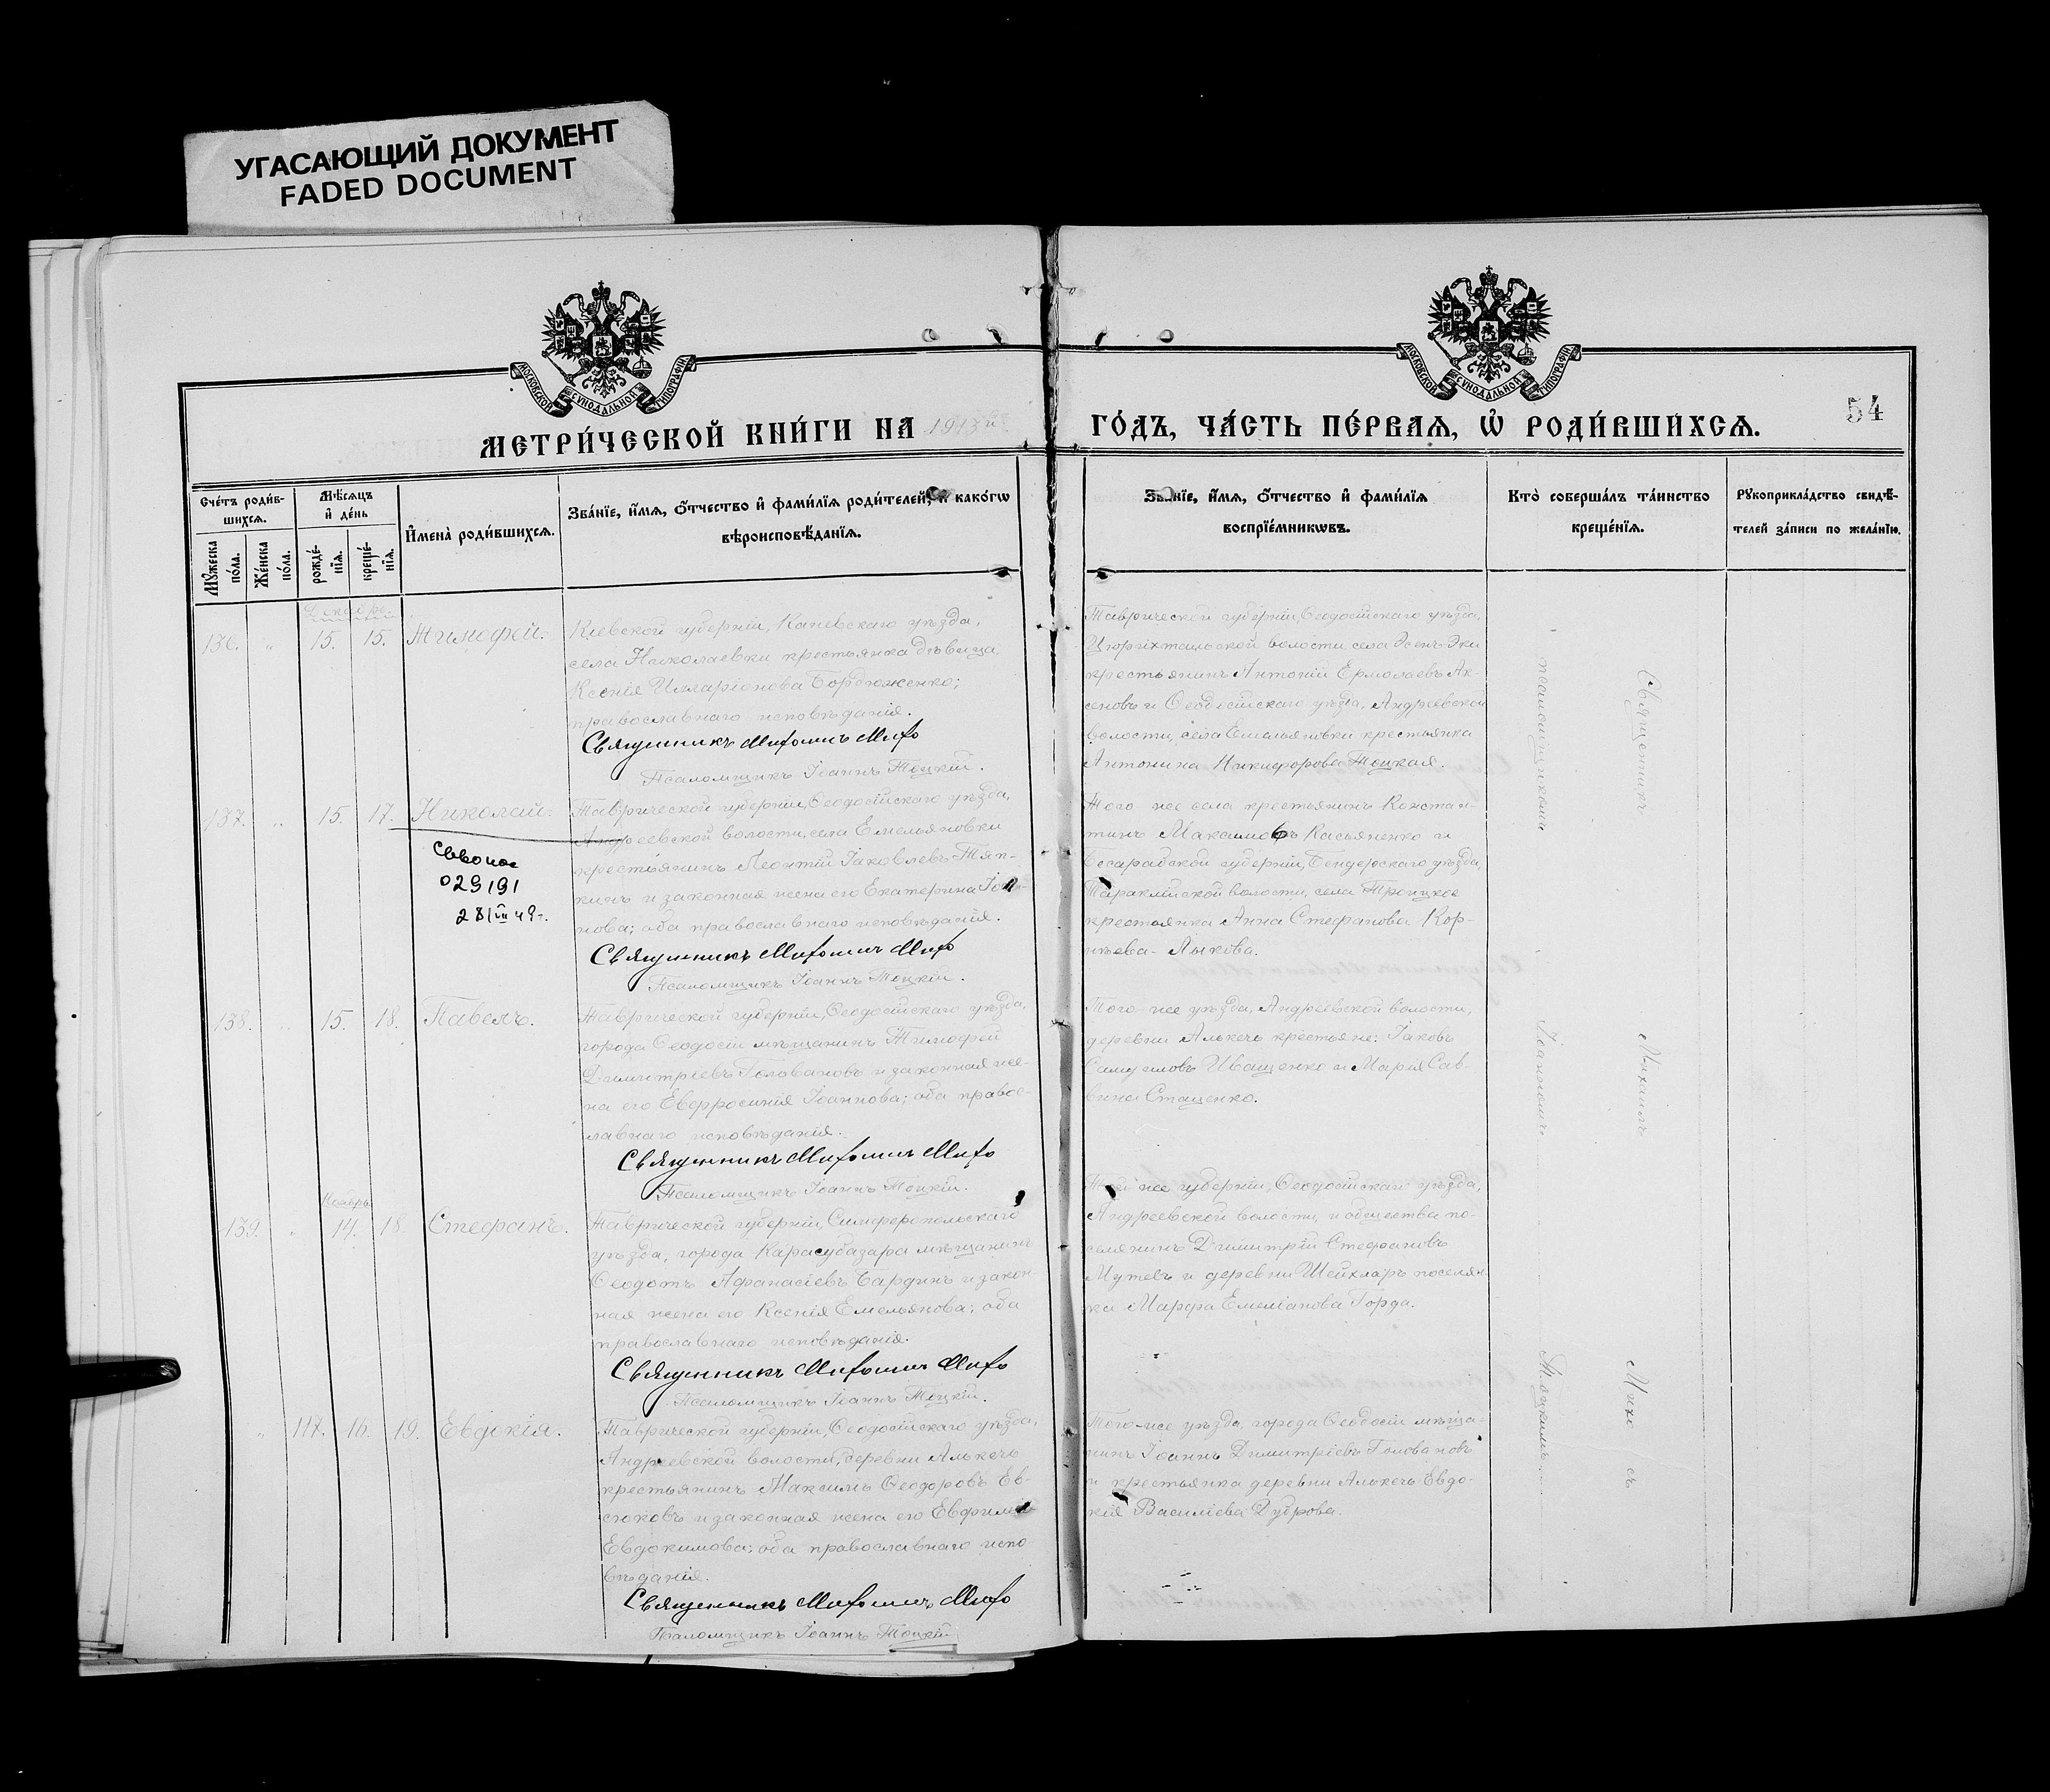 УГАСАЮЩИЙ ДОКУМЕНТ
FADED DOCUMENT
МОСКОВСКОЙ СУНОДАЛЬНОЙ ТИПОГРАФІИ
МОСКОВСКОЙ СУНОДАЛЬНОЙ ТИПОГРАФІИ
МЕТРИ́ЧЕСКОЙ КНИ́ГИ НА 1913й
ГО́ДЪ, ЧА́СТЬ ПЕ́РВАѦ, Ѡ҆ РОДИ́ВШИХСѦ.
54
Сче́тъ роди́в-
шихсѧ.
Мꙋ́жеска по́ла.
Же́нска по́ла.
Мѣ́сѧцъ
и҆ де́нь
рожде́-
нїѧ.
креще́-
нїѧ.
И҆мена̀ роди́вшихсѧ.
Зва́нїе, и҆́мѧ, ѻ҆́тчество и҆ фами́лїѧ роди́телей, и҆ како́гѡ
вѣроисповѣ́данїѧ.
Зва́нїе, и҆́мѧ, ѻ҆́тчество и҆ фами́лїѧ
воспрїе́мникѡвъ.
Кто̀ соверша́лъ та́инство
креще́нїѧ.
Рꙋкоприкла́дство свидѣ́-
телей за́писи по жела́нїю.
136. " 15. 15. Тимофей.
Кіевской губерніи, Каневскаго уѣзда,
села Николаевки крестьянка дѣвица
Ксенія Илларіонова Бордюженко;
православнаго исповѣданія.
Священникъ
Псаломщикъ Іоаннъ Тоцкій.
Таврической губерніи, Ѳеодосійскаго уѣзда,
Цюрихтальской волости села
крестьянинъ Антоній Ермолаевъ Ак-
сеновъ и Ѳеодосійскаго уѣзда, Андреевской
волости, села Емельяновки крестьянка
Антонина Никифорова Тоцкая.
137. " 15. 17. Николай.
029191
28/VII 49г.
Таврической губерніи, Ѳеодосійскаго уѣзда,
Андреевской волости, села Емельяновки
крестьянинъ Леонтій Іаковлевъ Тяп-
кинъ и законная жена его Екатерина
нова; оба православнаго исповѣданія.
Священникъ
Псаломщикъ Іоаннъ Тоцкій.
Того же села крестьянинъ Констан-
тинъ Максимовъ Касьяненко и
Бесарабской губерніи, Бендерскаго уѣзда,
Тараклійской волости, села Троицкое
крестьянка Анна Стефанова Кор-
нѣева-Лыкова.
138. " 15. 18. Павелъ.
Таврической губерніи, Ѳеодосійскаго уѣзда,
города Ѳеодосіи мѣщанинъ Тимофей
Димитріевъ Головановъ и законная же-
на его Евфросинія Іоаннова; оба правос-
лавнаго исповѣданія.
Священникъ
Псаломщикъ Іоаннъ Тоцкій.
Того же уѣзда, Андреевской волости,
деревни Алькечь крестьяне: Іаковъ
Самуиловъ Иващенко и Марія Сав-
вина Стаценко.
Ноябрь
139. " 14. 18. Стефанъ.
Таврической губерніи, Симферопольскаго
уѣзда, города Карасубазара мѣщанинъ
Ѳеодотъ Афанасіевъ Бардинъ и закон-
ная жена его Ксенія Емельянова; оба
православнаго исповѣданія.
Священникъ
Псаломщикъ Іоаннъ Тоцкій.
Той же губерніи, Ѳеодосійскаго уѣзда,
Андреевской волости, и общества по-
селянинъ Димитрій Стефановъ
Мутевъ и деревни Шейхларъ поселян-
ка Марфа Емеліанова Горда.
" 117. 16. 19. Евдокія.
Таврической губерніи, Ѳеодосійскаго уѣзда,
Андреевской волости, деревни Алькечь
крестьянинъ Максимъ Ѳеодоровъ Ев-
сюковъ и законная жена его
Евдокимова; оба православнаго испо-
вѣданія.
Священникъ
Псаломщикъ Іоаннъ Тоцкій
Того-же уѣзда, города Ѳеодосіи мѣща-
нинъ Іоаннъ Димитріевъ Головановъ
и крестьянка деревни Алькечь Евдо-
кія Василіева Дуброва.
Священникъ Михаилъ Михо съ
псаломщикомъ Іоанномъ Тоцкимъ.